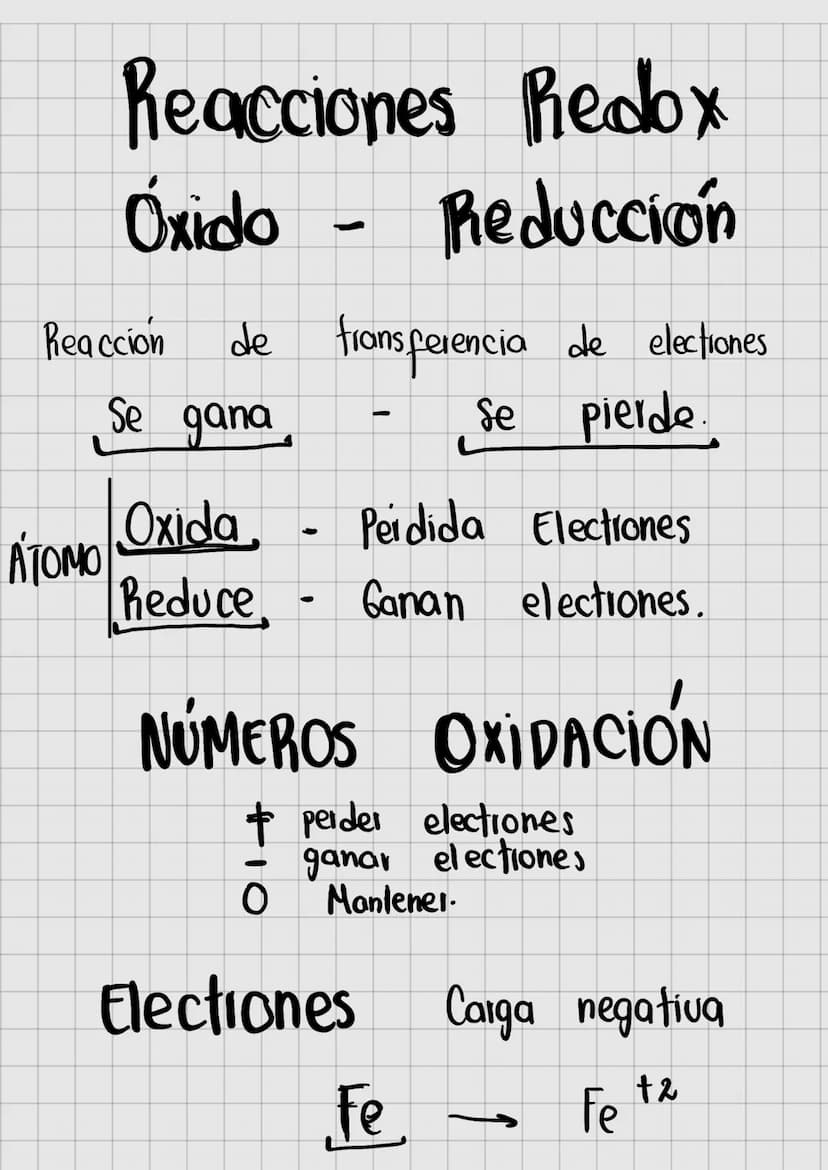 Reacciones Redox
Óxido - Reducción
Reacción de transferencia de electrones
Se gana - se pierde.
ÁTOMO
Oxida - Pérdida Electrones
Reduce - Ganan electrones.
NÚMEROS OXIDACIÓN
+ perder electrones
- ganar electrones
0 Mantener.
Electrones Carga negativa
Fe → Fe +2